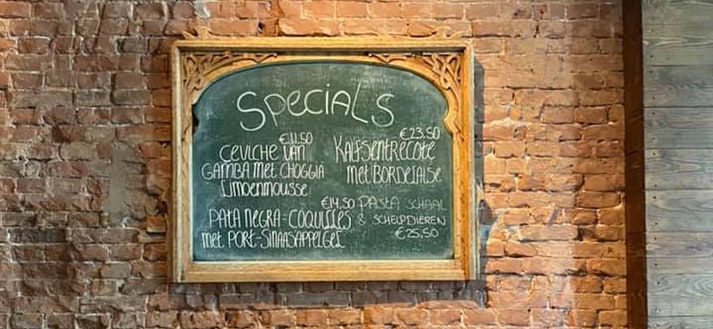 SPecials
€11.50
CEVICHE VAN
GAMBA MET CHOGGIA
LIMOENMOUSSE
€23.50
KALFSENTRECOTE
MET BORDELAISE
€14.50
PATA NEGRA-COQUILLES
MET PORT-SINAASAPPELGEL
PASTA SCHAAL
& SCHELPDIEREN
€25,50